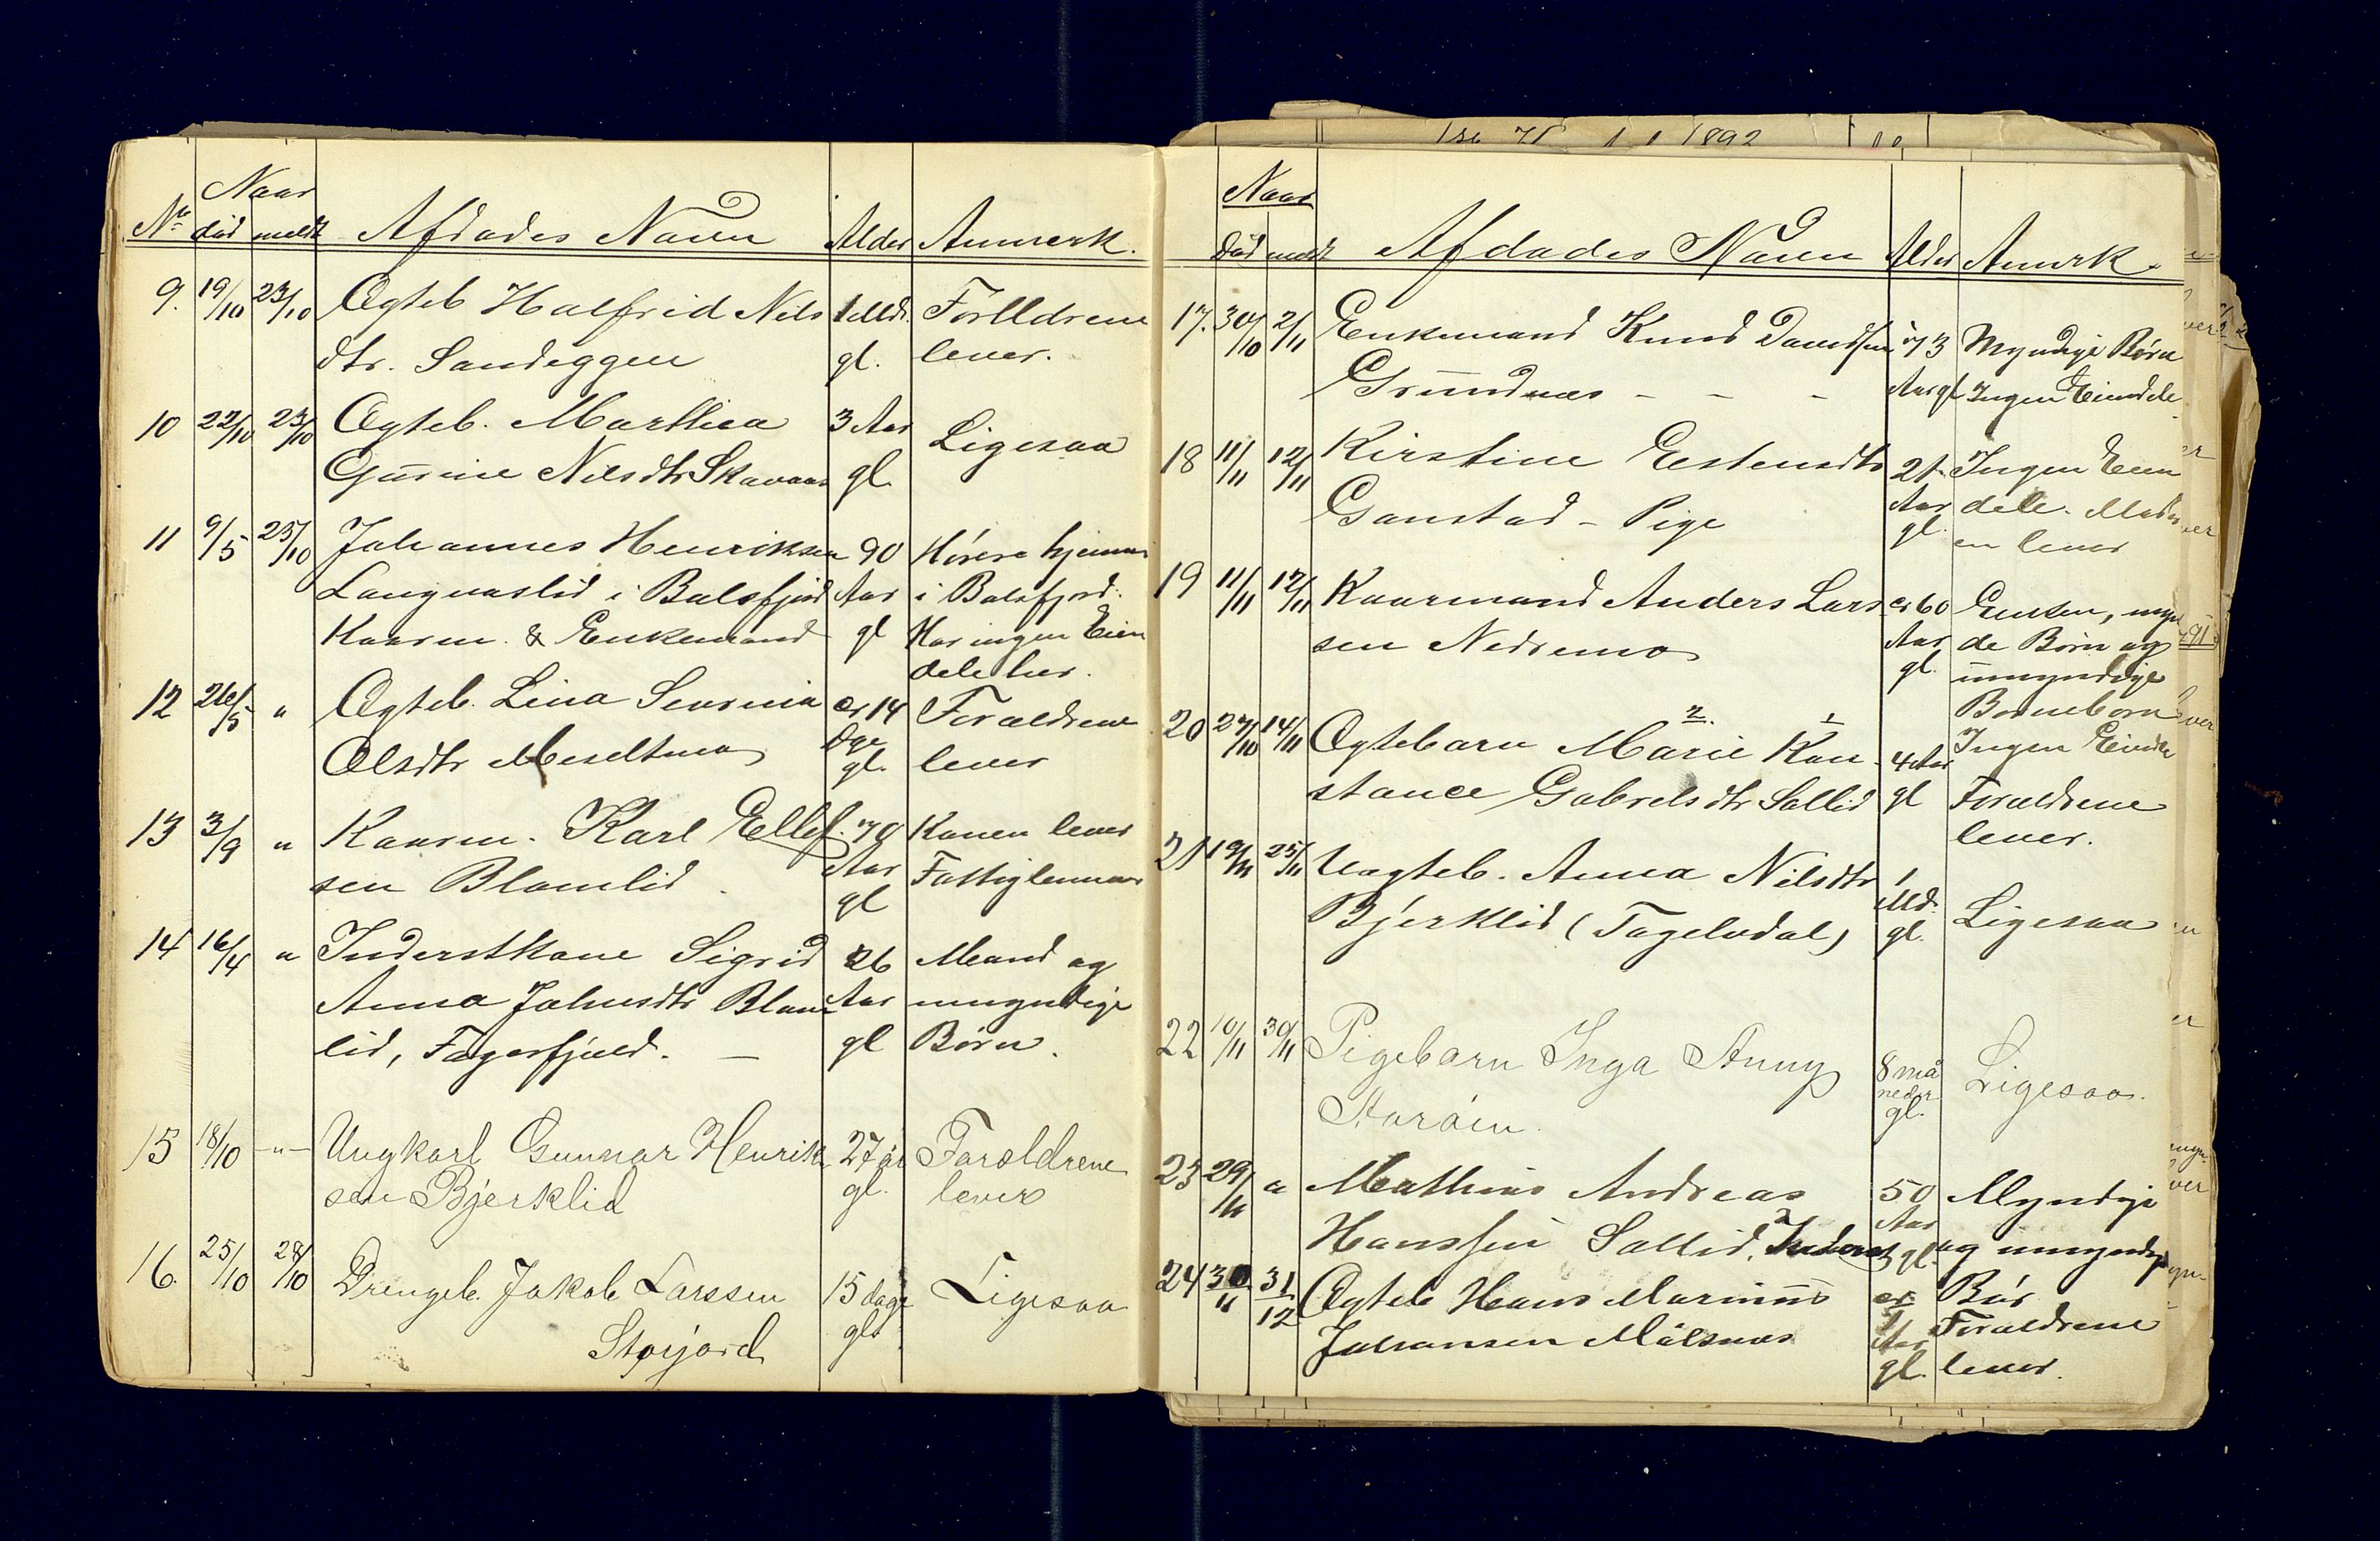 Naar
No død meldt Afdødes Navn Alder Anmerk.
9. 19/10 23/10 Ægteb Halfrid Nils 1 Md. Forlldrene
dtr. Sandeggen gl. lever.
10 22/10 23/10 Ægteb. Marthea 3 Aar Ligesaa
Gurine Nilsdtr Skavaas gl.
11 9/5 25/10 Johannes Henriksen 90 Hører hjemme
Langnaslid i Balsfjord Aar i Balsfjord.
Kaarm. & Enkemand gl Har ingen Eien
dele her.
12 26/5 " Ægteb. Lina cr 14 Forældrene
Olsdtr Moseltmo Dge gl. lever
13 3/9 " Kaarm. Karl Ellef 70 Konen lever
sen Blomlid Aar gl Fattiglemmer
14 16/4 " Inderstkone Sigrid 26 Mand og
Anna Johnsdtr Blom Aar umyndige
lid, Fagerfjeld. — gl Børn.
15 18/10 -"- Ungkarl Gunnar Henrik 27 år Forældrene
sen Bjerklid gl. lever
16. 25/10 28/10 Drengeb. Jakob Larssen 15 dage Ligesaa
Storjord gl.
1892
Naar
død meldt Afdødes Navn Alder Anmrk.
17. 30/10 2/11 Enkemand Knud Davidsen 73 Myndige Børn
Grundnæs - - - Aar gl Ingen Eiendele.
18 11/11 12/11 Kirstine Estensdtr 21 Ingen Eien
Gamstad - Pige Aar dele. Moder
gl. en lever
19 11/11 12/11 Kaarmand Anders Lars cr 60 Enken, myn
sen Nedremo Aar de Børn og
gl. umyndige
Børnebørn
Ingen Eiendele
20 27/10 14/11 Ægtebarn Marie 2. Kon 1 4 Aar
stance Gabrielsdtr Sollid gl Forældrene
lever.
21 19/11 25/11 Uægteb. Anna Nilsdtr 1 Md.
Bjerklid (Fagelvdal) gl. Ligesaa
22 10/11 30/11 Pigebarn Inga Anny 8 må Ligesaa.
Storøien neder gl.
23 29/11 " Mathias Andreas 50 Myndige
Hanssen Sollid, Inderst Aar gl. og umyndige
Bør
24 30/11 31/12 Ægteb Hans Marinius cr 1 Forældrene
Johansen Målsnæs Aar gl. lever.